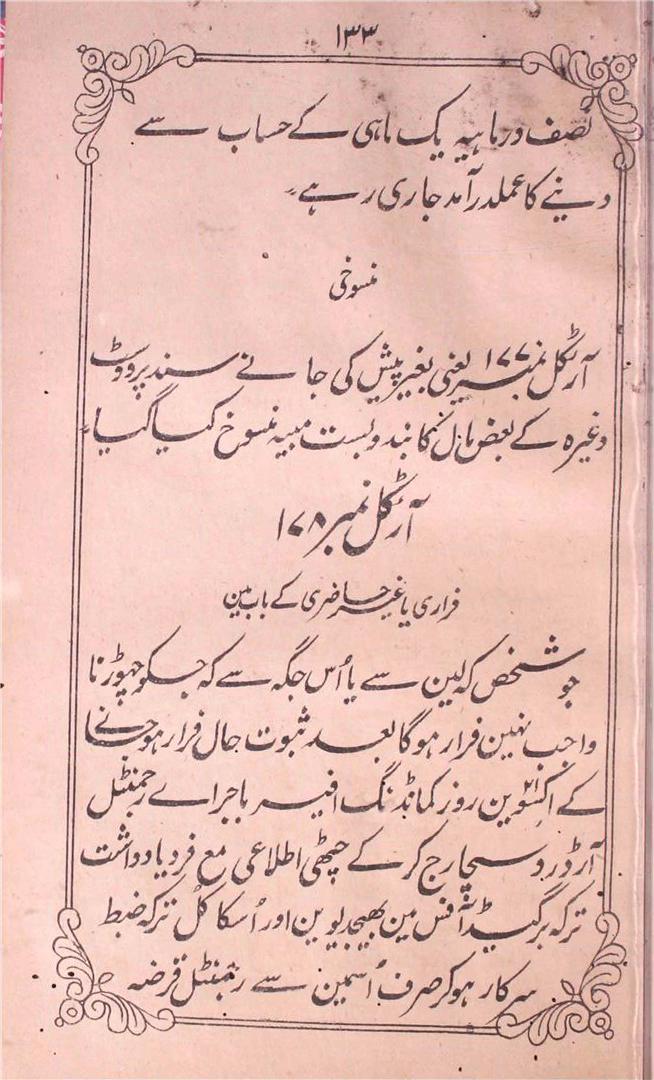 ۱۳۳
نصف درماہیہ یک ماہی کے حساب سے
دینے کا عملدرآمد جاری رہے۔
منسوخی
آرٹکل نمبر ۱۷۷ یعنی بغیر پیش کی جانے سند پروبٹ
وغیرہ کے بعض مال کا بندوبست مبیہ منسوخ کیا گیا۔
آرٹکل نمبر ۱۷۸
فراری یا غیر حاضری کے باب مین
جو شخص کہ لین سے یا اُس جگہ سے کہ جسکو چھوڑنا
واجب نہین فرار ہوگا بعد ثبوت حال فرار ہوجانے
کے اکیسوین روز کمانڈنگ افیسر باجراے رجمنٹل
آرڈر ڈسچارج کر کے چٹھی اطلاعی مع فرد یادداشت
ترکہ برگیڈ آفس مین بھیجدیوین اور اُسکا کُل ترکہ ضبط
سرکار ہوکر صرف اُسمین سے رجمنٹل قرضہ